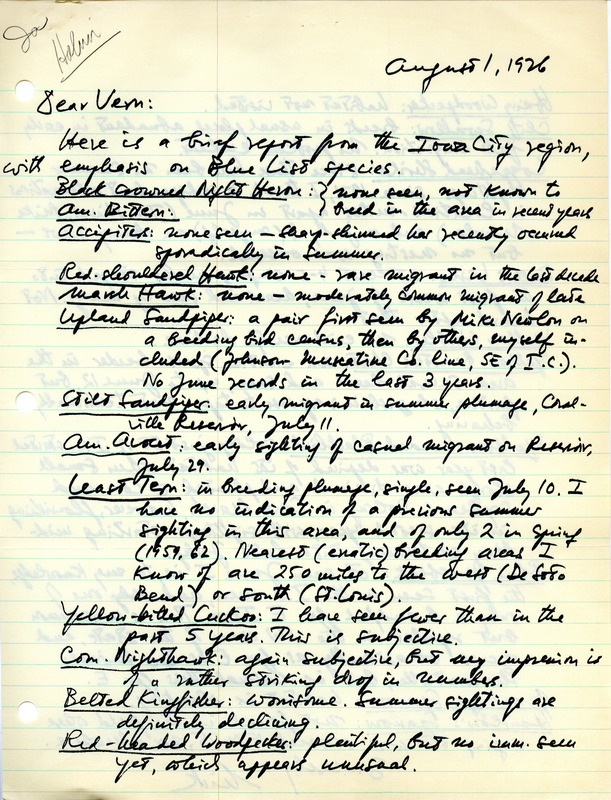 Ia
Halmi
August 1, 1976
Dear Vern:
Here is a brief report from the Iowa City region,
with emphasis on Blue List species.
Black crowned Night Heron: } none seen, not known to
Am. Bittern: } breed in the area in recent years
Accipiters: none seen - sharp-shinned has recently occurred
sporadically in summer.
Red-shouldered Hawk: none - rare migrant in the last decade
Marsh Hawk: none - moderately common migrant of late
Upland Sandpiper: a pair first seen by Mike Newlon on
a breeding bird census, then by others, myself in-
cluded (Johnson-Muscatine Co. line, SE of I.C.).
No June records in the last 3 years.
Stilt Sandpiper: early migrant in summer plumage, Coral-
ville Reservoir, July 11.
Am. Avocet: early sighting of casual migrant on Reservoir,
July 29.
Least Tern: in breeding plumage, single, seen July 10. I
have no indication of a previous summer
sighting in this area, and of only 2 in spring
(1959, 62). Nearest (erratic) breeding areas I
know of are 250 miles to the west (De Soto
Bend) or south (St. Louis).
Yellow-billed Cuckoo: I have seen fewer than in the
past 5 years. This is subjective.
Com. Nighthawk: again subjective, but my impression is
of a rather striking drop in numbers.
Belted Kingfisher: worrisome. Summer sightings are
definitely declining.
Red-headed Woodpecker: plentiful, but no imm. seen
yet, which appears unusual.